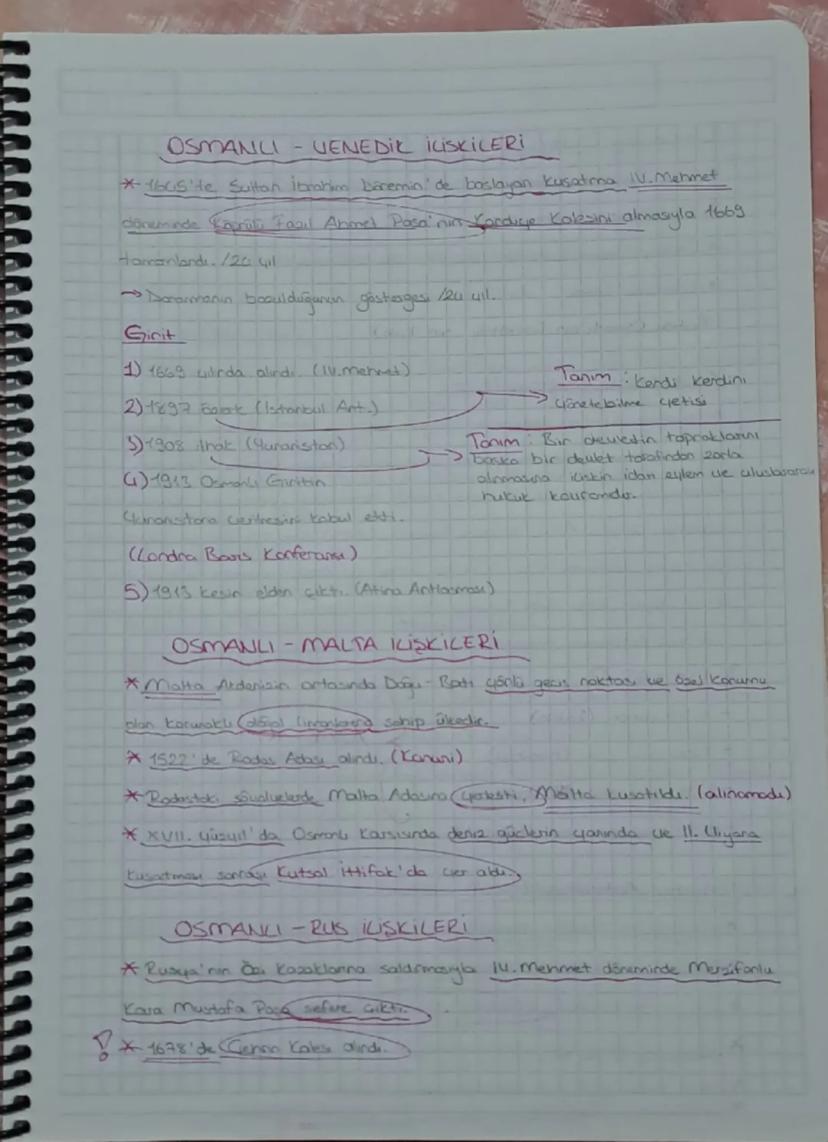 OSMANLI - VENEDİK İLİŞKİLERİ
* 1645'te Sultan İbrahim Dönemin'de başlayan kuşatma IV. Mehmet
döneminde Köprülü Fazıl Ahmet Paşa'nın Kandiye Kalesini almasıyla 1669
tamamlandı. /24 yıl
→ Donanmanın bozulduğunun göstergesi /24 yıl.
Girit
1) 1669 yılında alındı. (IV. Mehmet)
Tanım: Kendi kendini
yönetebilme yetisi
2) 1897 (İstanbul Ant.)
3) 1908 ilhak (Yunanistan)
Tanım: Bir devletin topraklarını
başka bir devlet tarafından zorla
alınmasına ilişkin idari eylem ve uluslararası
hukuk kavramıdır.
4) 1913 Osmanlı Giritin
Yunanistana verilmesini kabul etti.
(Londra Barış Konferansı)
5) 1913 kesin elden çıktı. (Atina Antlaşması)
OSMANLI - MALTA İLİŞKİLERİ
* Malta Akdenizin ortasında Doğu - Batı yönlü geçiş noktası ve özel konumu
olan korunaklı doğal limanlara sahip ülkedir.
* 1522' de Rodos Adası alındı. (Kanuni)
* Rodostaki şövalyelerde Malta Adasına yerleşti. Malta kuşatıldı. (alınamadı)
* XVII. yüzyıl'da Osmanlı karşısında deniz güçlerin yanında ve II. Viyana
kuşatması sonrası Kutsal İttifak'da yer aldı.
OSMANLI - RUS İLİŞKİLERİ
* Rusya'nın Özi Kazaklarına saldırmasıyla IV. Mehmet döneminde Merzifonlu
Kara Mustafa Paşa sefere çıktı.
! * 1678'de Çehrin Kalesi alındı.